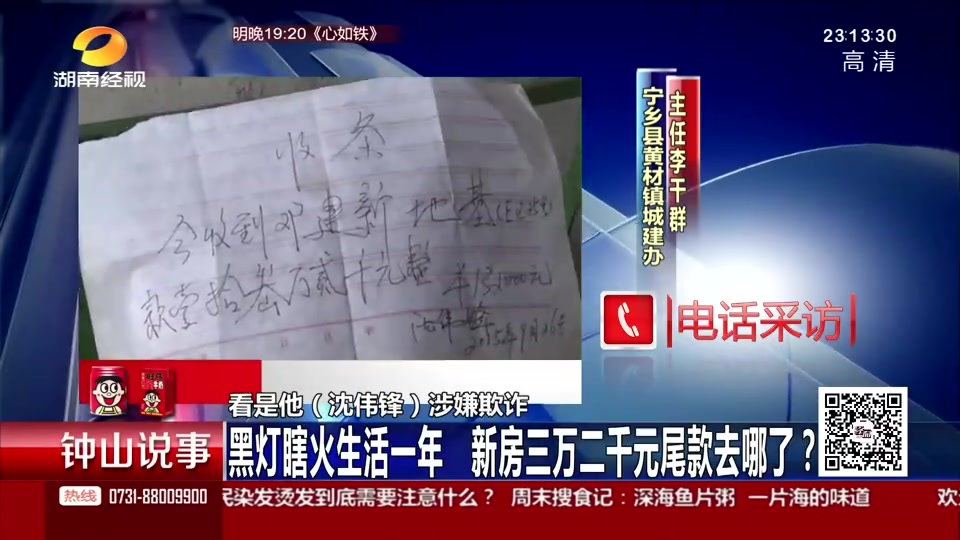 明晚19:20《心如铁》
23:13:30
高清
湖南经视
收条
今收到邓建新地基
款壹拾叁万贰千元整
沈伟锋
2015年9月16日
主任李干群
宁乡县黄材镇城建办
电话采访
看是他（沈伟锋）涉嫌欺诈
钟山说事
黑灯瞎火生活一年 新房三万二千元尾款去哪了？
热线 0731-88009900
染发烫发到底需要注意什么？ 周末搜食记：深海鱼片粥 一片海的味道